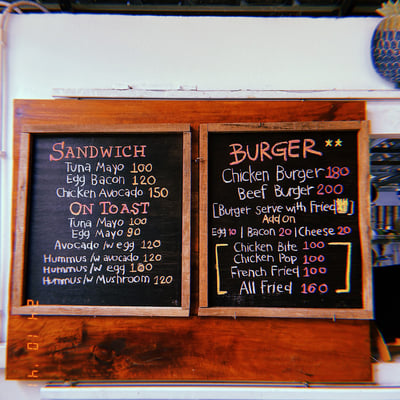 SANDWICH
Tuna Mayo 100
Egg Bacon 120
Chicken Avocado 150
ON TOAST
Tuna Mayo 100
Egg Mayo 90
Avocado /w egg 120
Hummus /w avocado 120
Hummus /w egg 100
Hummus /w Mushroom 120
BURGER **
Chicken Burger 180
Beef Burger 200
[Burger Serve with Fried]
Add on
Egg 10 | Bacon 20 | Cheese 20
Chicken Bite 100
Chicken Pop 100
French Fried 100
All Fried 160